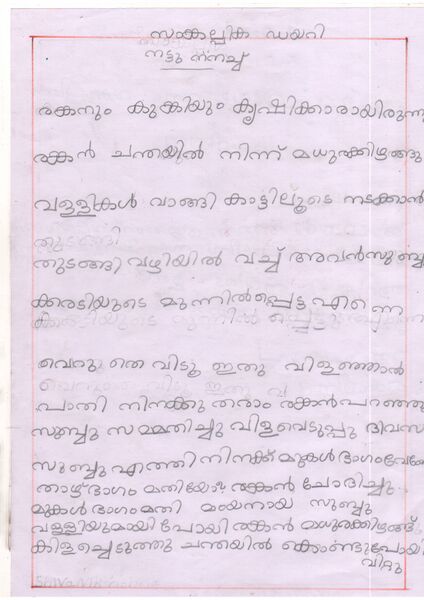 സാങ്കല്പിക ഡയറി
നട്ടു നനച്ച്
രങ്കനും കുങ്കിയും കൃഷിക്കാരായിരുന്നു
രങ്കൻ ചന്തയിൽ നിന്ന് മധുരക്കിഴങ്ങു
വള്ളികൾ വാങ്ങി കാട്ടിലൂടെ നടക്കാൻ
തുടങ്ങി
തുടങ്ങി വഴിയിൽ വച്ച് അവൻ സുബ്ബു
ക്കരടിയുടെ മുന്നിൽപ്പെട്ടു എന്നെ
വെറു തെ വിടൂ ഇതു വിളഞ്ഞാൽ
പാതി നിനക്കു തരാം രങ്കൻ പറഞ്ഞു
സുബ്ബു സമ്മതിച്ചു വിളവെടുപ്പു ദിവസ
സുബ്ബു എത്തി നിനക്ക് മുകൾ ഭാഗം വേണോ
താഴ് ഭാഗം മതിയോ രങ്കൻ ചോദിച്ചു
മുകൾ ഭാഗം മതി മടയനായ സുബ്ബു
വള്ളിയുമായി പോയി രങ്കൻ മധുരക്കിഴങ്ങ്
കിളച്ചെടുത്തു ചന്തയിൽ കൊണ്ടുപോയി
വിറ്റു